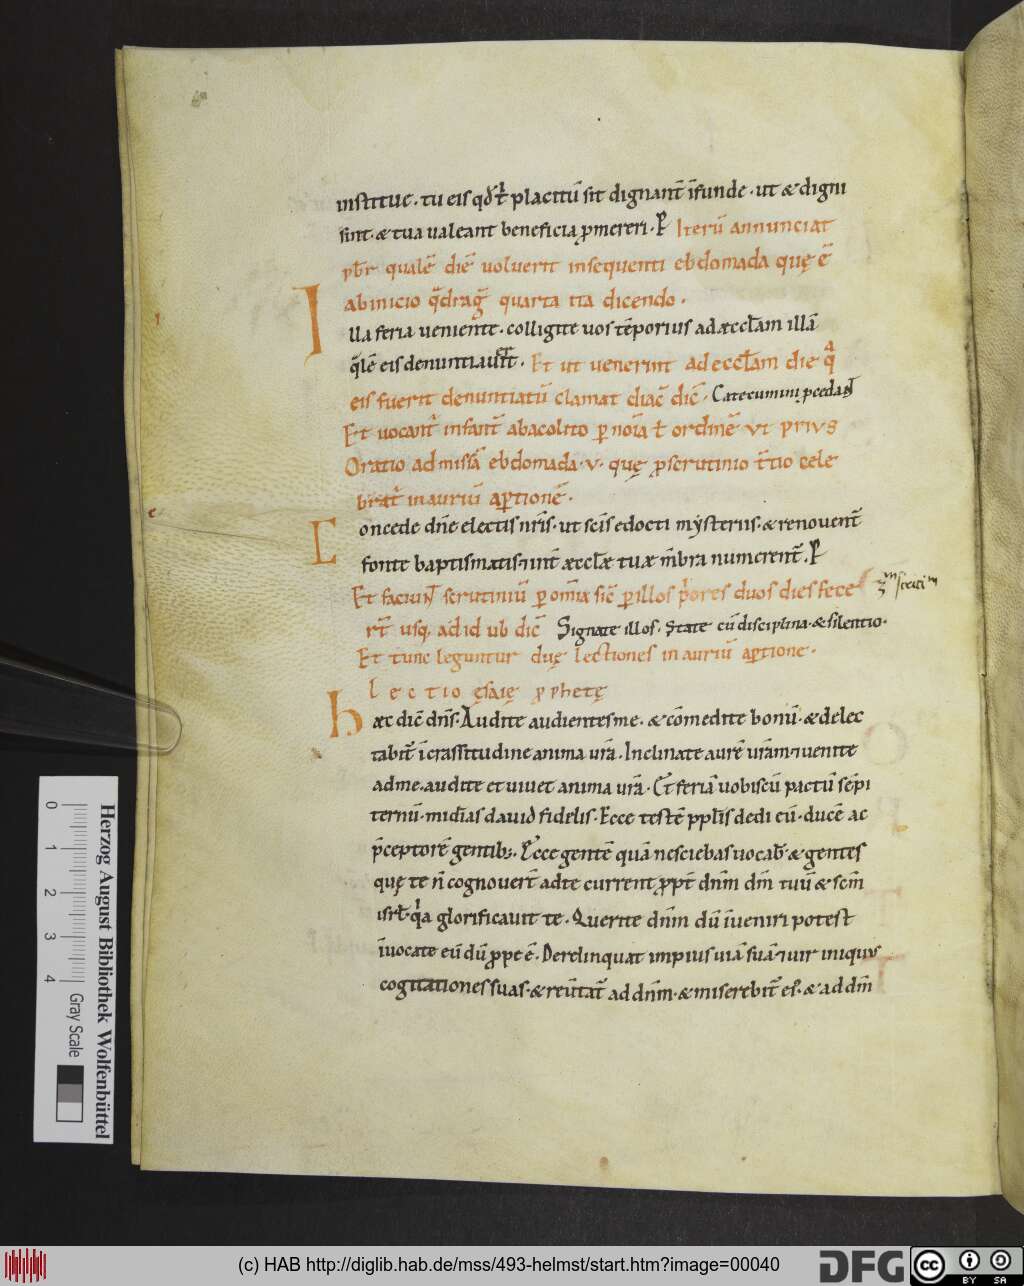 institue . tu eis qđ t̄ placitū sit dignant̄ īfunde . ut & digni
sint . & tua ualeant beneficia ꝓmereri . Iterū annunciat
pb̄r qualē diē uoluerit insequenti ebdomada quę ē
ab inicio q̄drag̃ quarta ita dicendo .
Illa feria uenientē . colligite uos tēporius ad æccl̄am illā
q̄lē eis denuntiauer̄t . Et ut uenerint ad eccl̄am die q̄
eis fuerit denuntiatū clamat diac̄ dic̄ . Catecumini ꝓcedan̄t
Et uocant̄ infant̄ ab acolito ꝑ noīa t̄ ordinē ut prius
Oratio ad missā ebdomada . v . quę ꝓ scrutinio t̄tio cele
brat̄ in auriū aꝑtionē .
Concede dn̄e electis nr̄is . ut sc̄is edocti mẏsteriis . & renouent̄
fonte baptismatis ⁊ int̄ æccl̄æ tuæ m̄bra numerent̄ . P
Et faciunt scrutiniū ꝑ omīa sic̄ ꝑ illos p̄ores duos dies fece
rt̄ usq, ad id ub dic̄ Signate illos . State cū disciplina . & silentio .
Et tunc leguntur duę lectiones in auriū aꝑtione .
lectio ęsaię ꝓphetę
Hæc dic̄ dn̄s . Audite audientes me . & cōmedite bonū . & delec
tabit̄ ī crassitudine anima ur̄a . Inclinate aurē ur̄am ⁊ uenite
ad me . audite et uiuet anima ur̄a . Et feriā uobiscū pactū sēpi
ternū . mid̄ias dauid fidelis . Ecce testē ppl̄is dedi eū . ducē ac
p̄ceptorē gentib; . Ecce gentē quā nesciebas uocab̄ . & gentes
quę te n̄ cognouer̄t ad te current ꝓpt̄ dn̄m dm̄ tuū & sc̄m
isrl̄ . q̄a glorificauit te . Querite dn̄m dū īueniri potest
īuocate eū dū ꝓpe ē . Derelinquat impius uiā suā ⁊ uir iniquus
cogitationes suas . & reūtat̄ ad dn̄m . & miserebit̄ ei' . & ad dm̄
Herzog August Bibliothek Wolfenbüttel
0 1 2 3 4 Gray Scale
(c) HAB http://diglib.hab.de/mss/493-helmst/start.htm?image=00040
DFG
cc BY SA